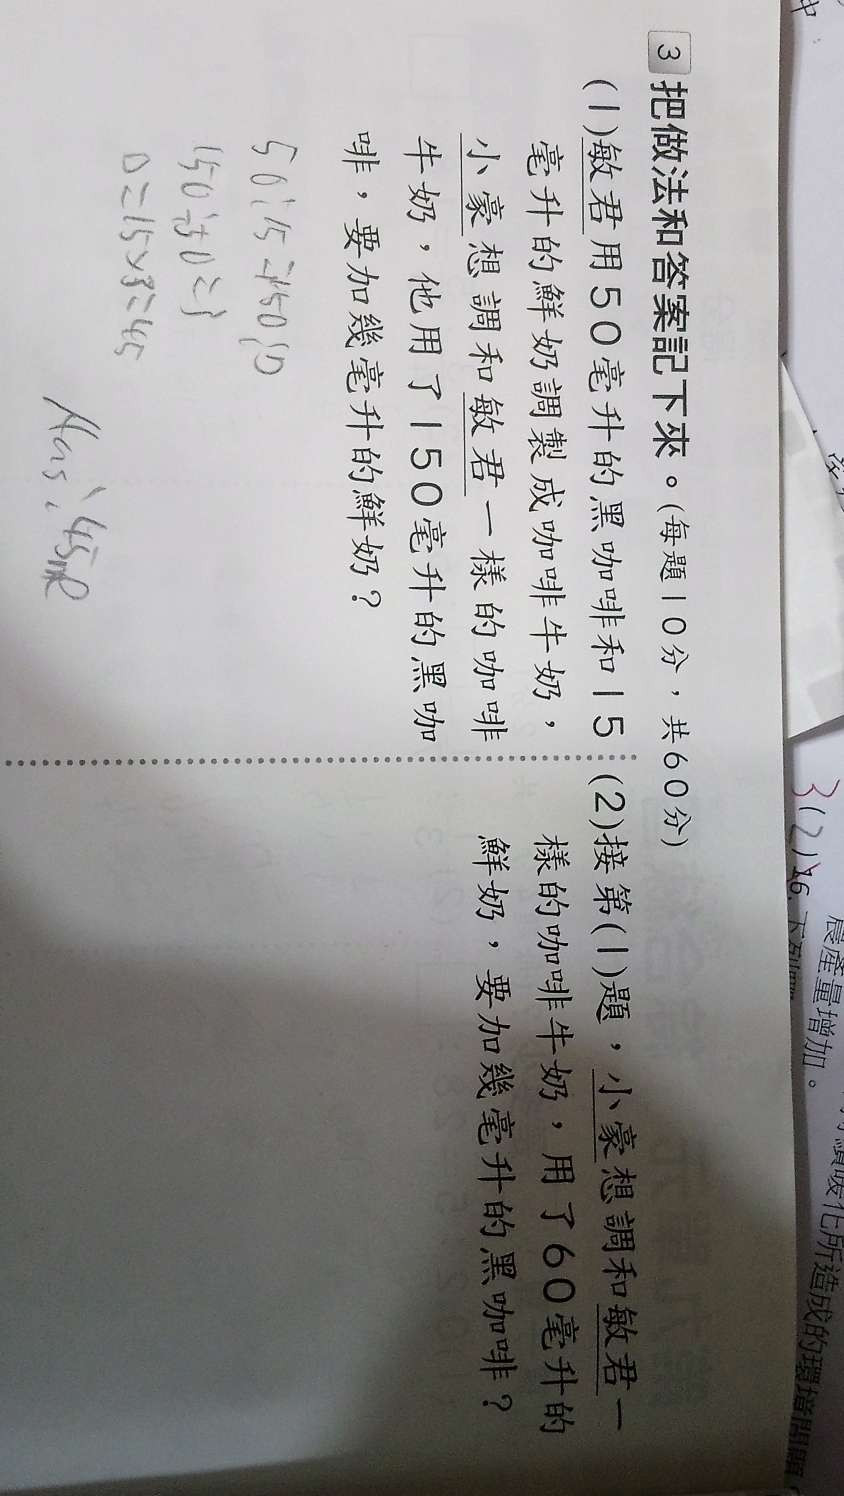 3 把做法和答案記下來。(每題10分，共60分)
(1)敏君用50毫升的黑咖啡和15
毫升的鮮奶調製成咖啡牛奶，
小豪想調和敏君一樣的咖啡
牛奶，他用了150毫升的黑咖
啡，要加幾毫升的鮮奶？
50:15=150:□
150÷50=3
□=15×3=45
Ans:45mℓ
(2)接第(1)題，小豪想調和敏君一
樣的咖啡牛奶，用了60毫升的
鮮奶，要加幾毫升的黑咖啡？
中
3(2)
16.下列
農產量增加。
碳化所造成的環境問題